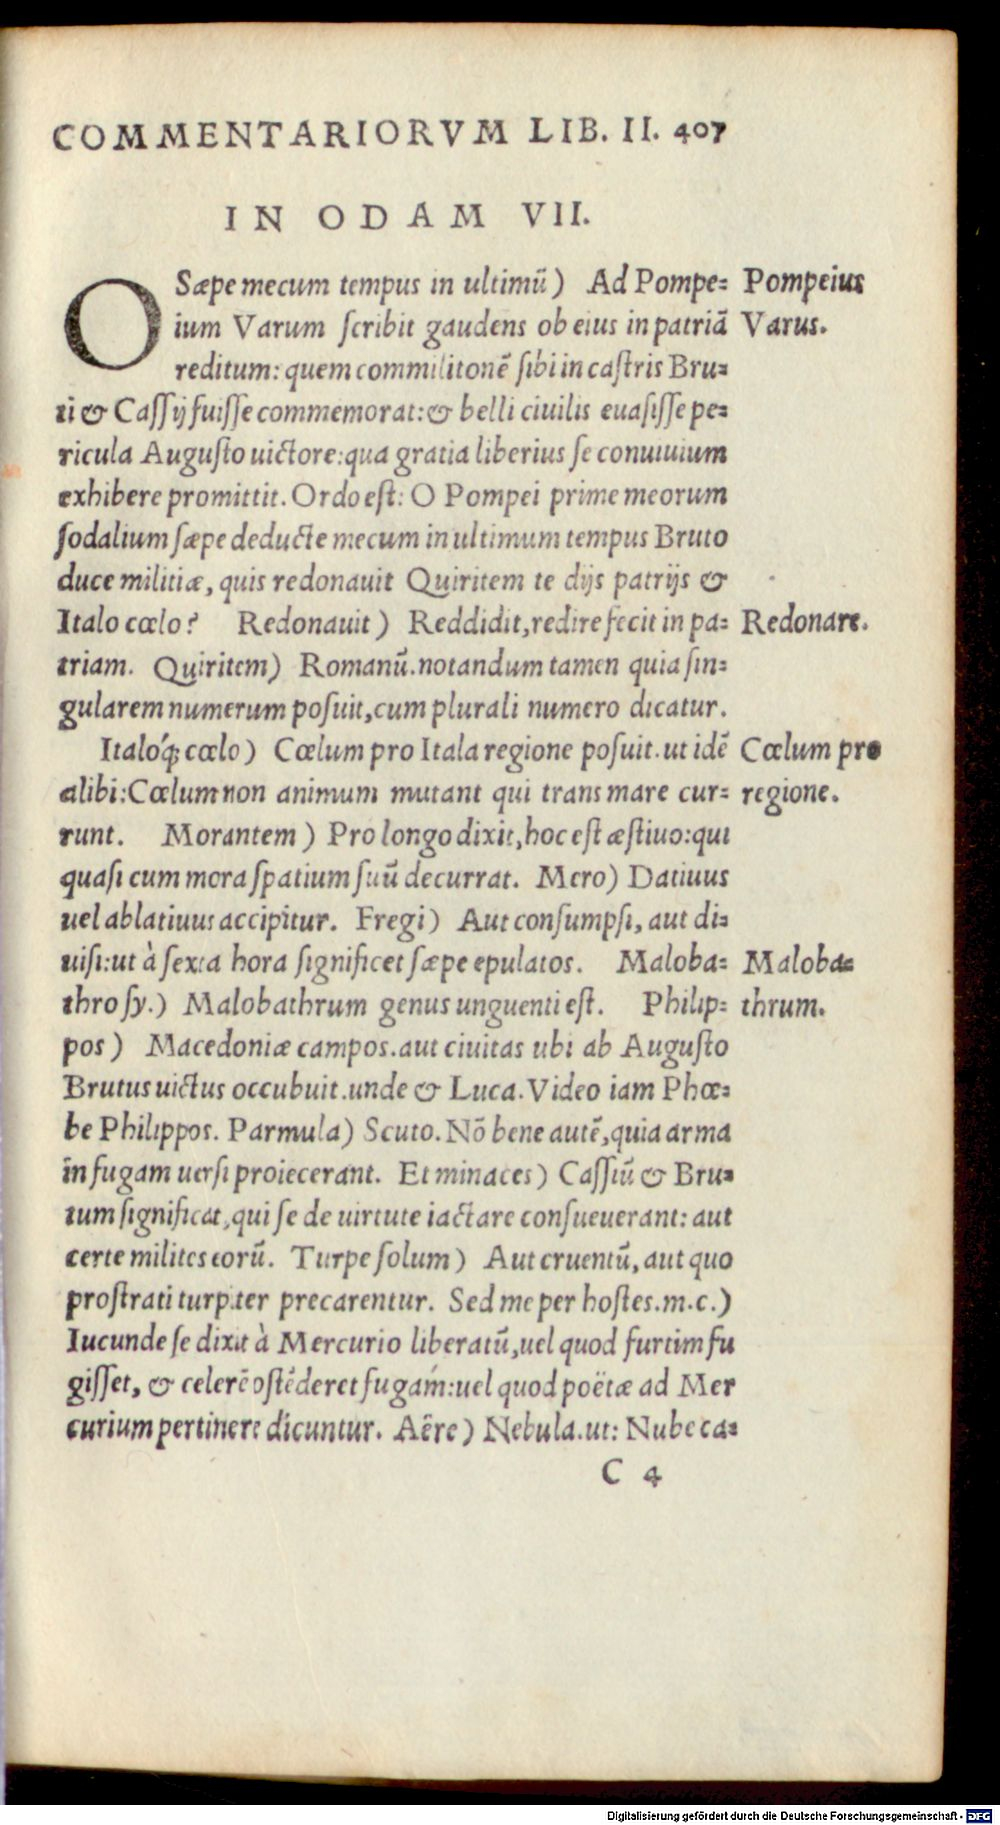 COMMENTARIORVM LIB. II. 407
IN ODAM VII.
O Sæpe mecum tempus in ultimū) Ad Pompe= Pompeius
ium Varum ſcribit gaudens ob eius in patriā Varus.
reditum: quem commilitonē ſibi in caſtris Bru=
ti & Caſſij fuiſſe commemorat: & belli ciuilis euaſiſſe pe=
ricula Auguſto uictore: qua gratia liberius ſe conuiuium
exhibere promittit. Ordo eſt: O Pompei prime meorum
ſodalium ſæpe deducte mecum in ultimum tempus Bruto
duce militiæ, quis redonauit Quiritem te dijs patrijs &
Italo cœlo? Redonauit) Reddidit, redire fecit in pa= Redonare.
triam. Quiritem) Romanū. notandum tamen quia ſin=
gularem numerum poſuit, cum plurali numero dicatur.
Italóq; cœlo) Cœlum pro Itala regione poſuit. ut idē Cœlum pro
alibi: Cœlum non animum mutant qui trans mare cur= regione.
runt. Morantem) Pro longo dixit, hoc eſt æſtiuo: qui
quaſi cum mora ſpatium ſuū decurrat. Mero) Datiuus
uel ablatiuus accipitur. Fregi) Aut conſumpſi, aut di=
uiſi: ut à ſexta hora ſignificet ſæpe epulatos. Maloba= Maloba=
thro ſy.) Malobathrum genus unguenti eſt. Philip= thrum.
pos) Macedoniæ campos. aut ciuitas ubi ab Auguſto
Brutus uictus occubuit. unde & Luca. Video iam Phœ=
be Philippos. Parmula) Scuto. Nō bene autē, quia arma
in fugam uerſi proiecerant. Et minaces) Caſſiū & Bru=
tum ſignificat, qui ſe de uirtute iactare conſueuerant: aut
certe milites eorū. Turpe ſolum) Aut cruentū, aut quo
proſtrati turpiter precarentur. Sed me per hoſtes. m. c.)
Iucunde ſe dixit à Mercurio liberatū, uel quod furtim fu
giſſet, & celerē oſtēderet fugam: uel quod poëtæ ad Mer
curium pertinere dicuntur. Aëre) Nebula. ut: Nube ca=
C 4
Digitalisierung gefördert durch die Deutsche Forschungsgemeinschaft - DFG